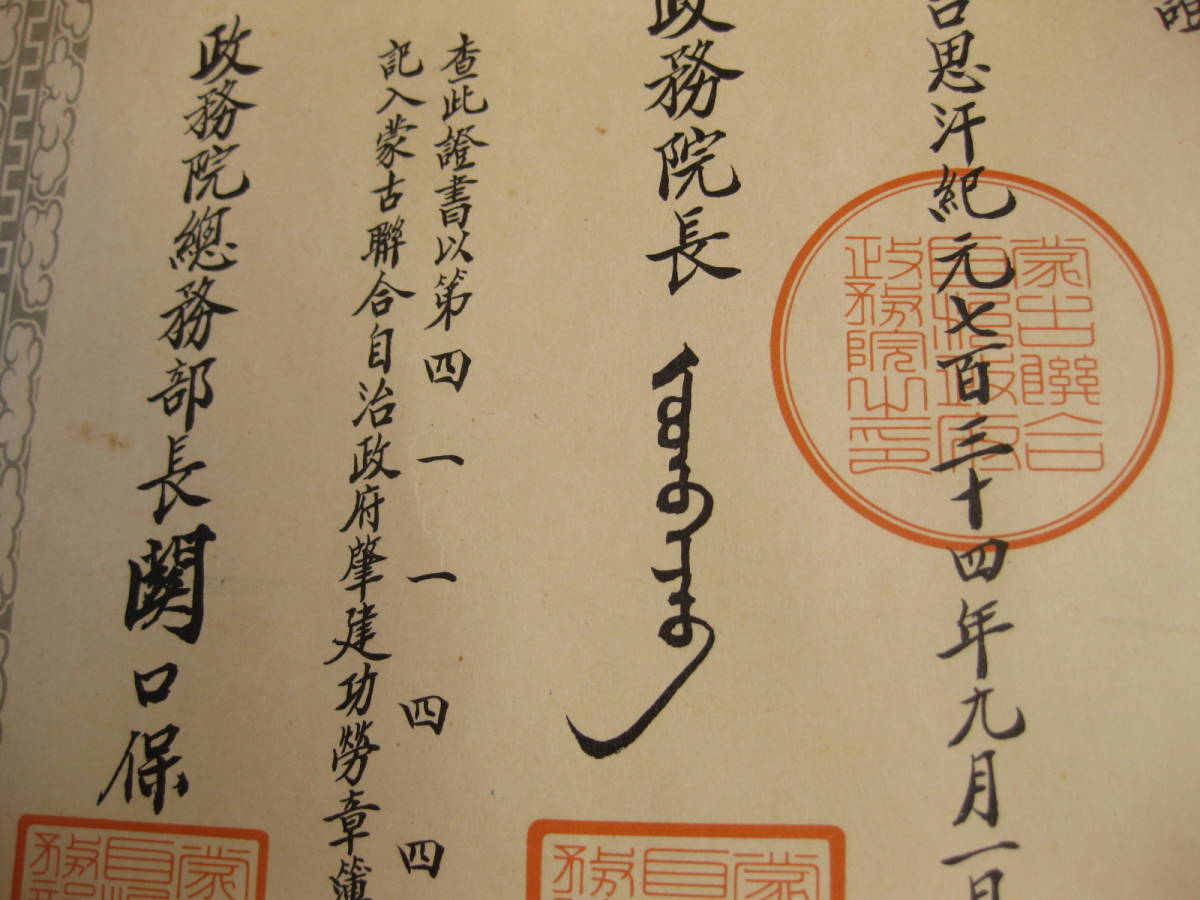 吉思汗紀元七百三十四年九月一日
蒙古聯合
自治政府
政務院之印
政務院長
查此證書以第四一一四四
記入蒙古聯合自治政府肇建功勞章簿
政務院總務部長關口保